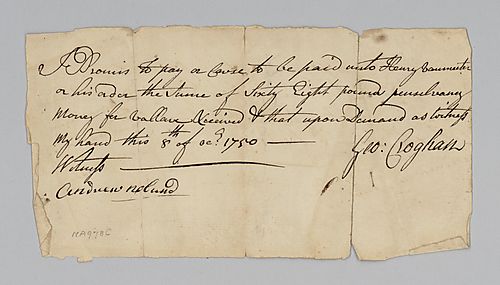 I Promis to pay or Cause to be paid unto Henry Vanmeter
or his order the sume of Sixty Eight pound penselvany
Money for vallaw Received & that upon Demand as witness
My hand this 8th of oc. 1750
Geo: Croghan
Witness
Andrew
MA978C